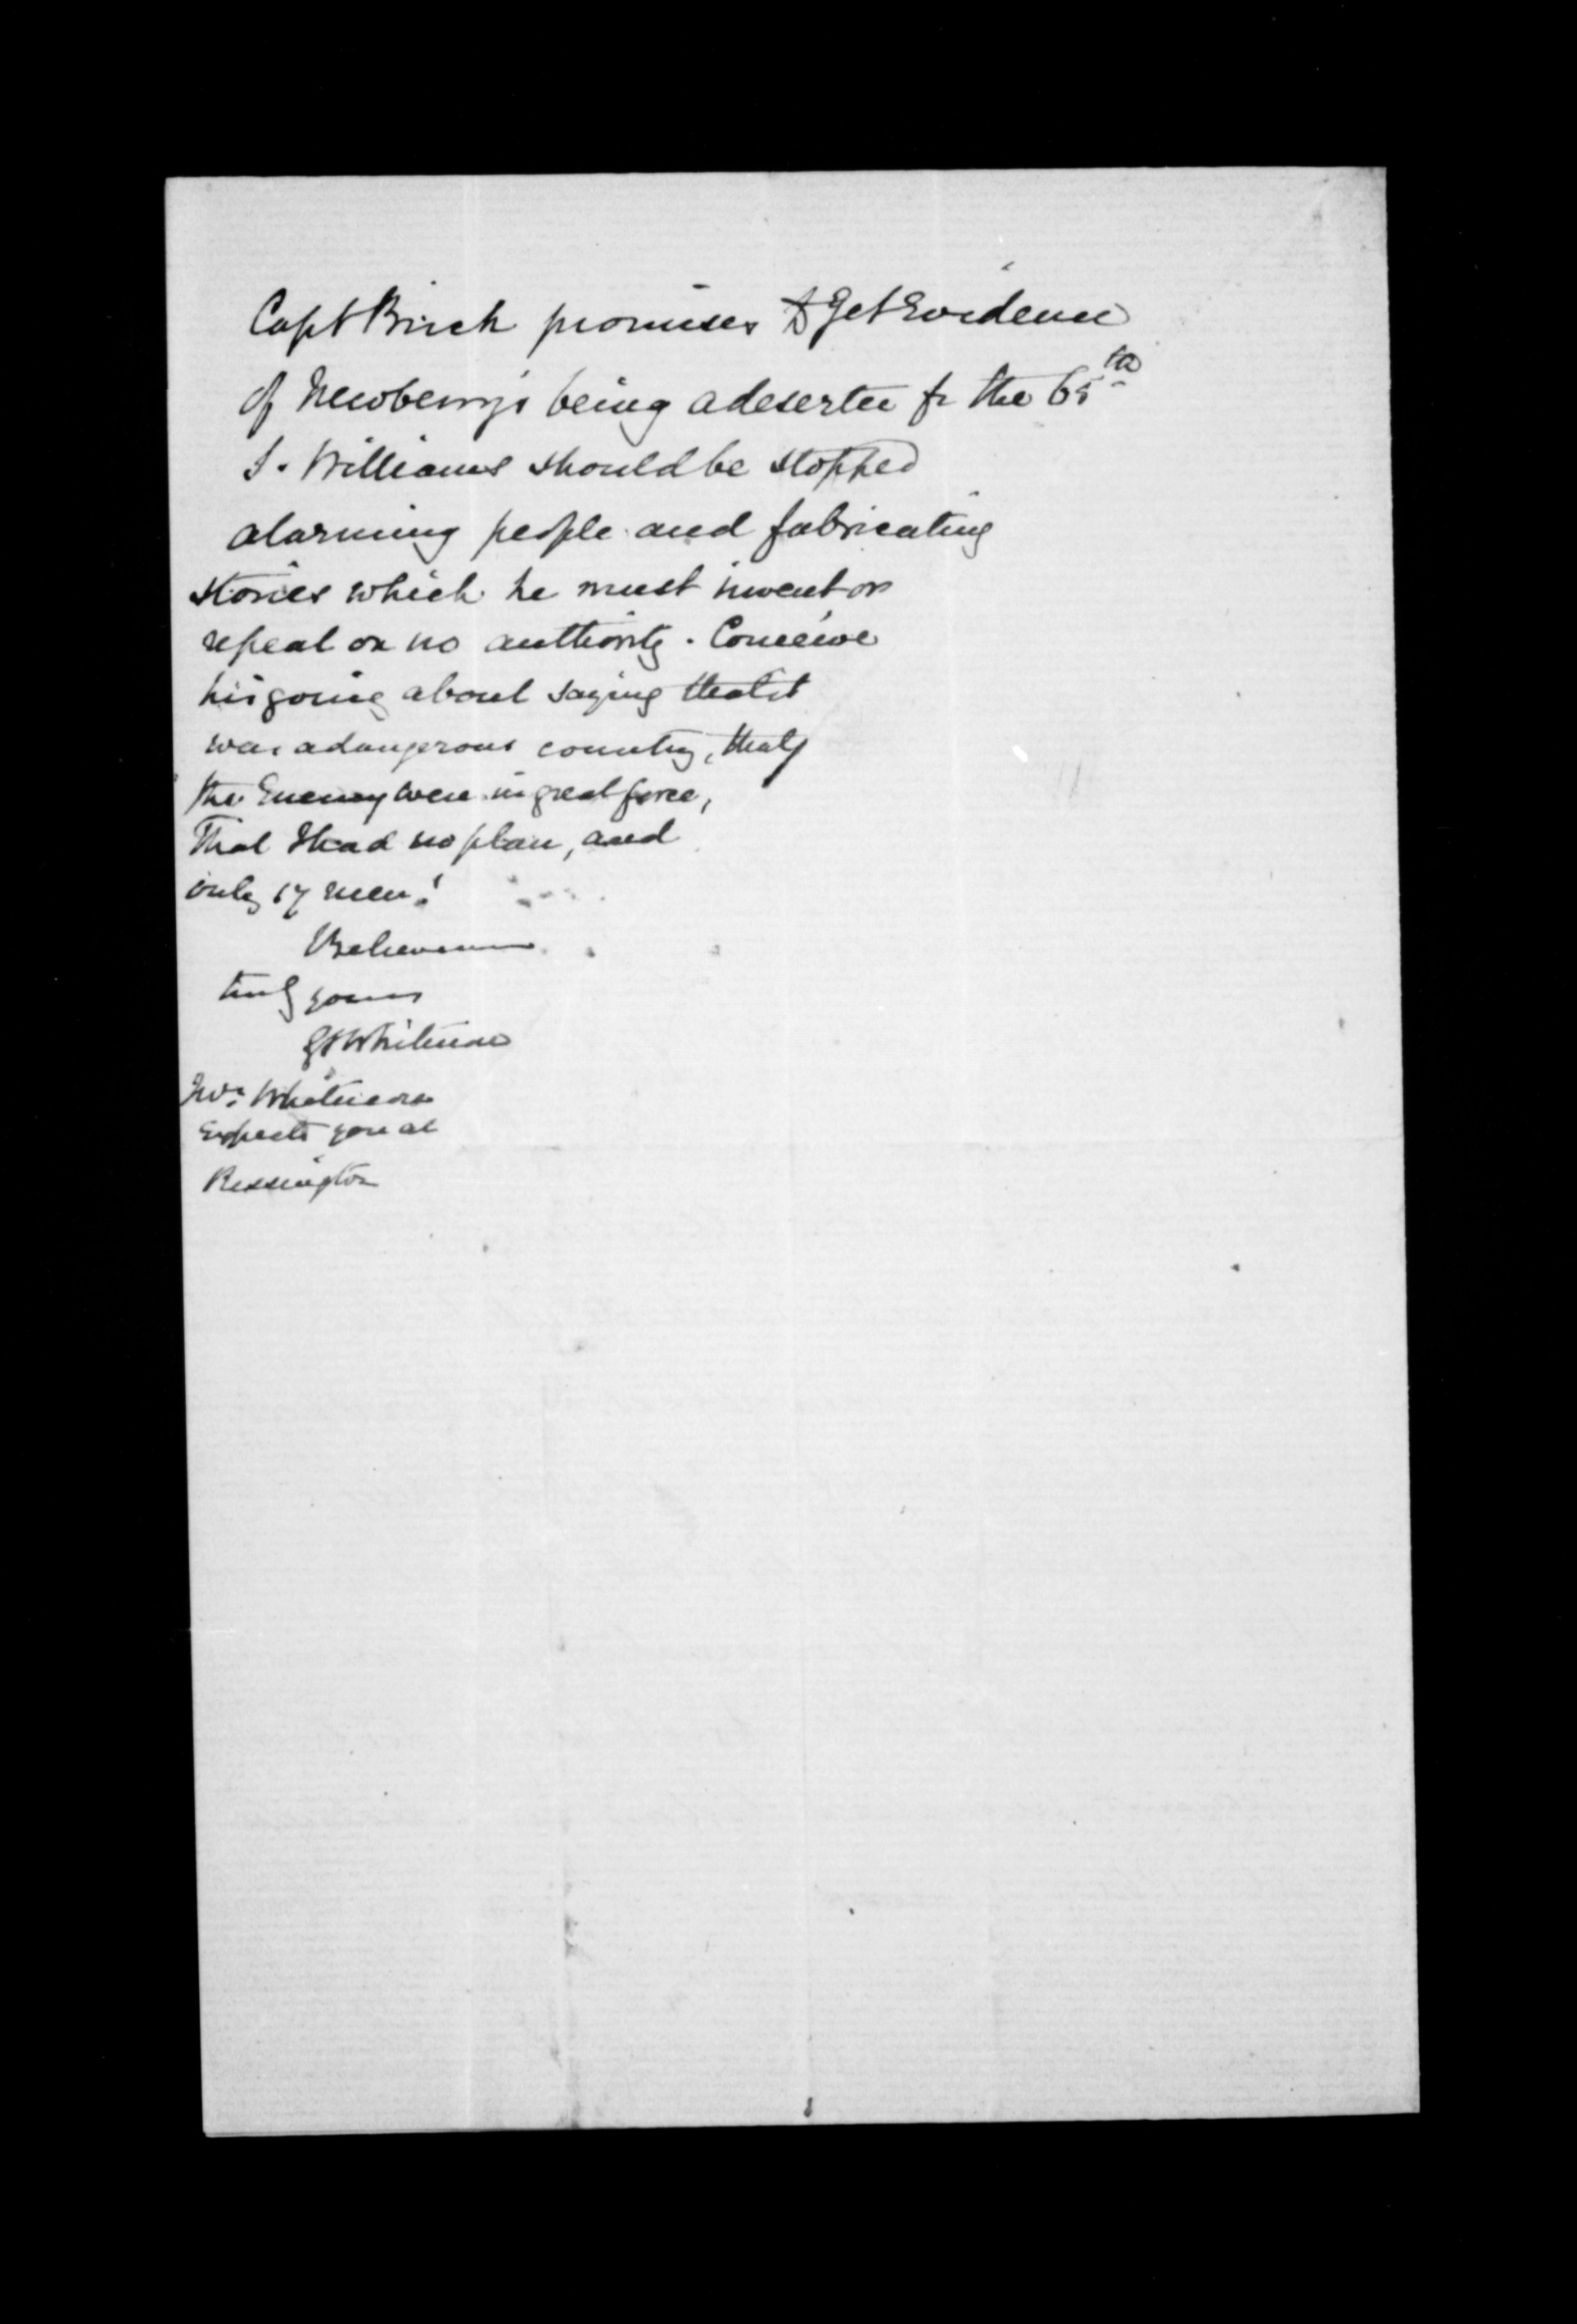 Capt Birch promises to Get Evidence
of Newberry's being a deserter fr the 65th
S. Williams should be stopped
alarming people and fabricating
stories which he must invent or
repeat on no authority. Conceive
his going about saying that it
was a dangerous country, that
the Enemy were in great force,
That I had no plan, and
only 17 men!
Believe me
truly yours
GSWhitmore
Mrs. Whitmore
Expects you at
Rissington